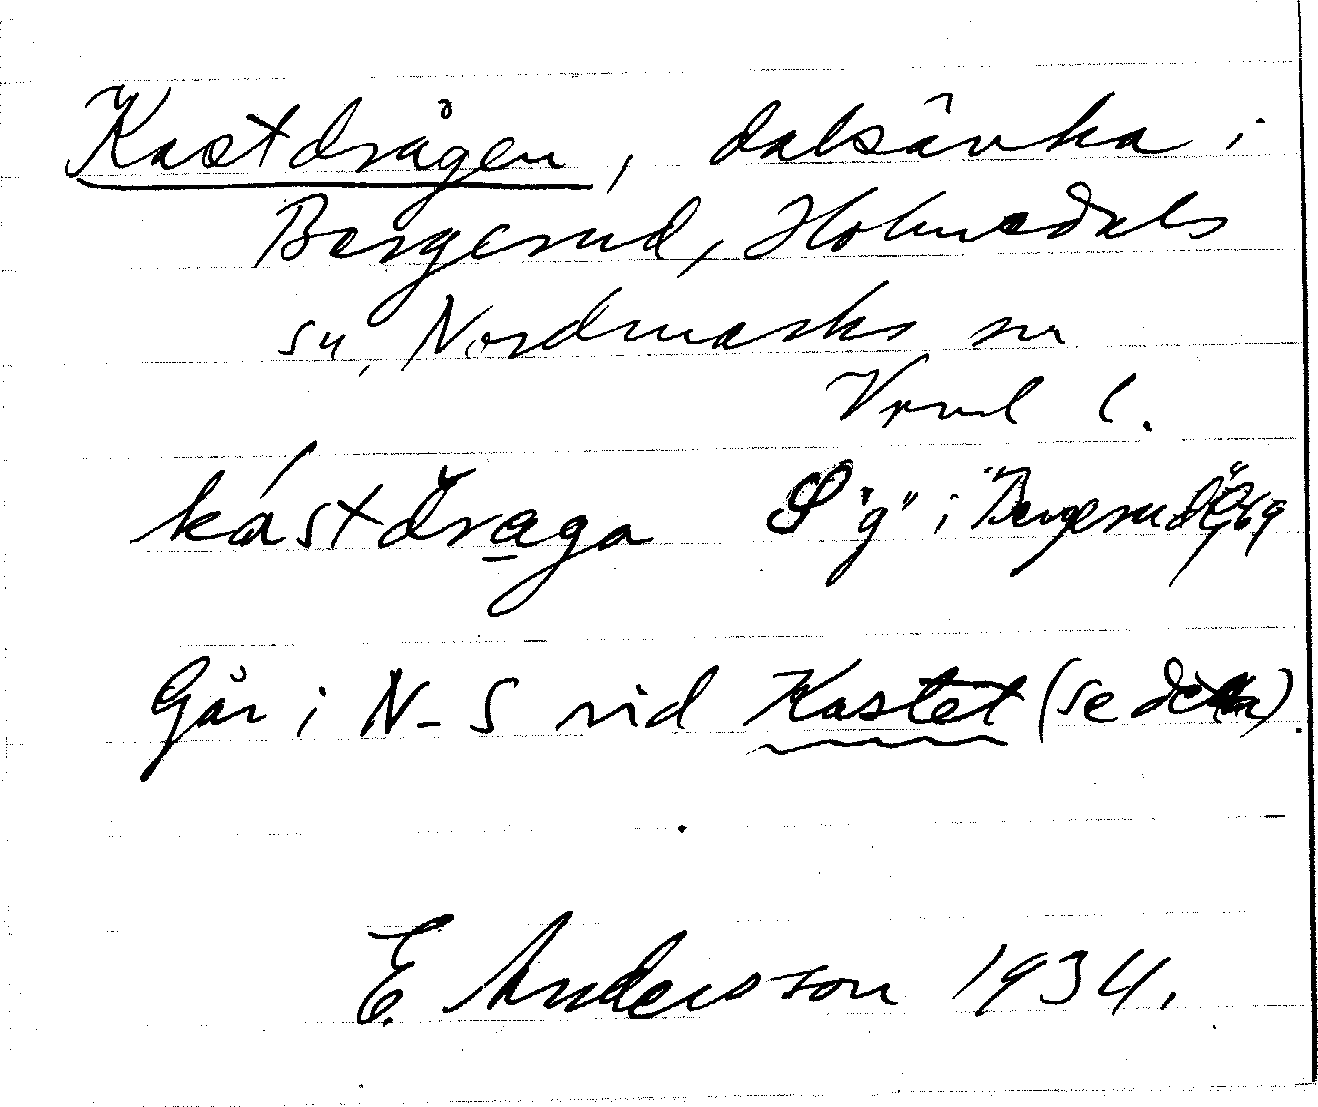 Kastdrågen, dalsänka i
Bergerud, Holmedals
sn, Nordmarks
Vrml l.
kástdraga S "g" i "Bergerud
Går i N-S vid Kastet (se detta).
E. Andersson 1934.